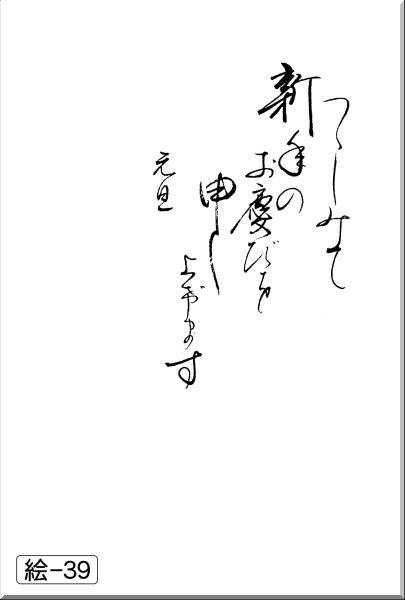 つゝしみて
新年の
お慶びを
申し
上げます
元旦
絵-39